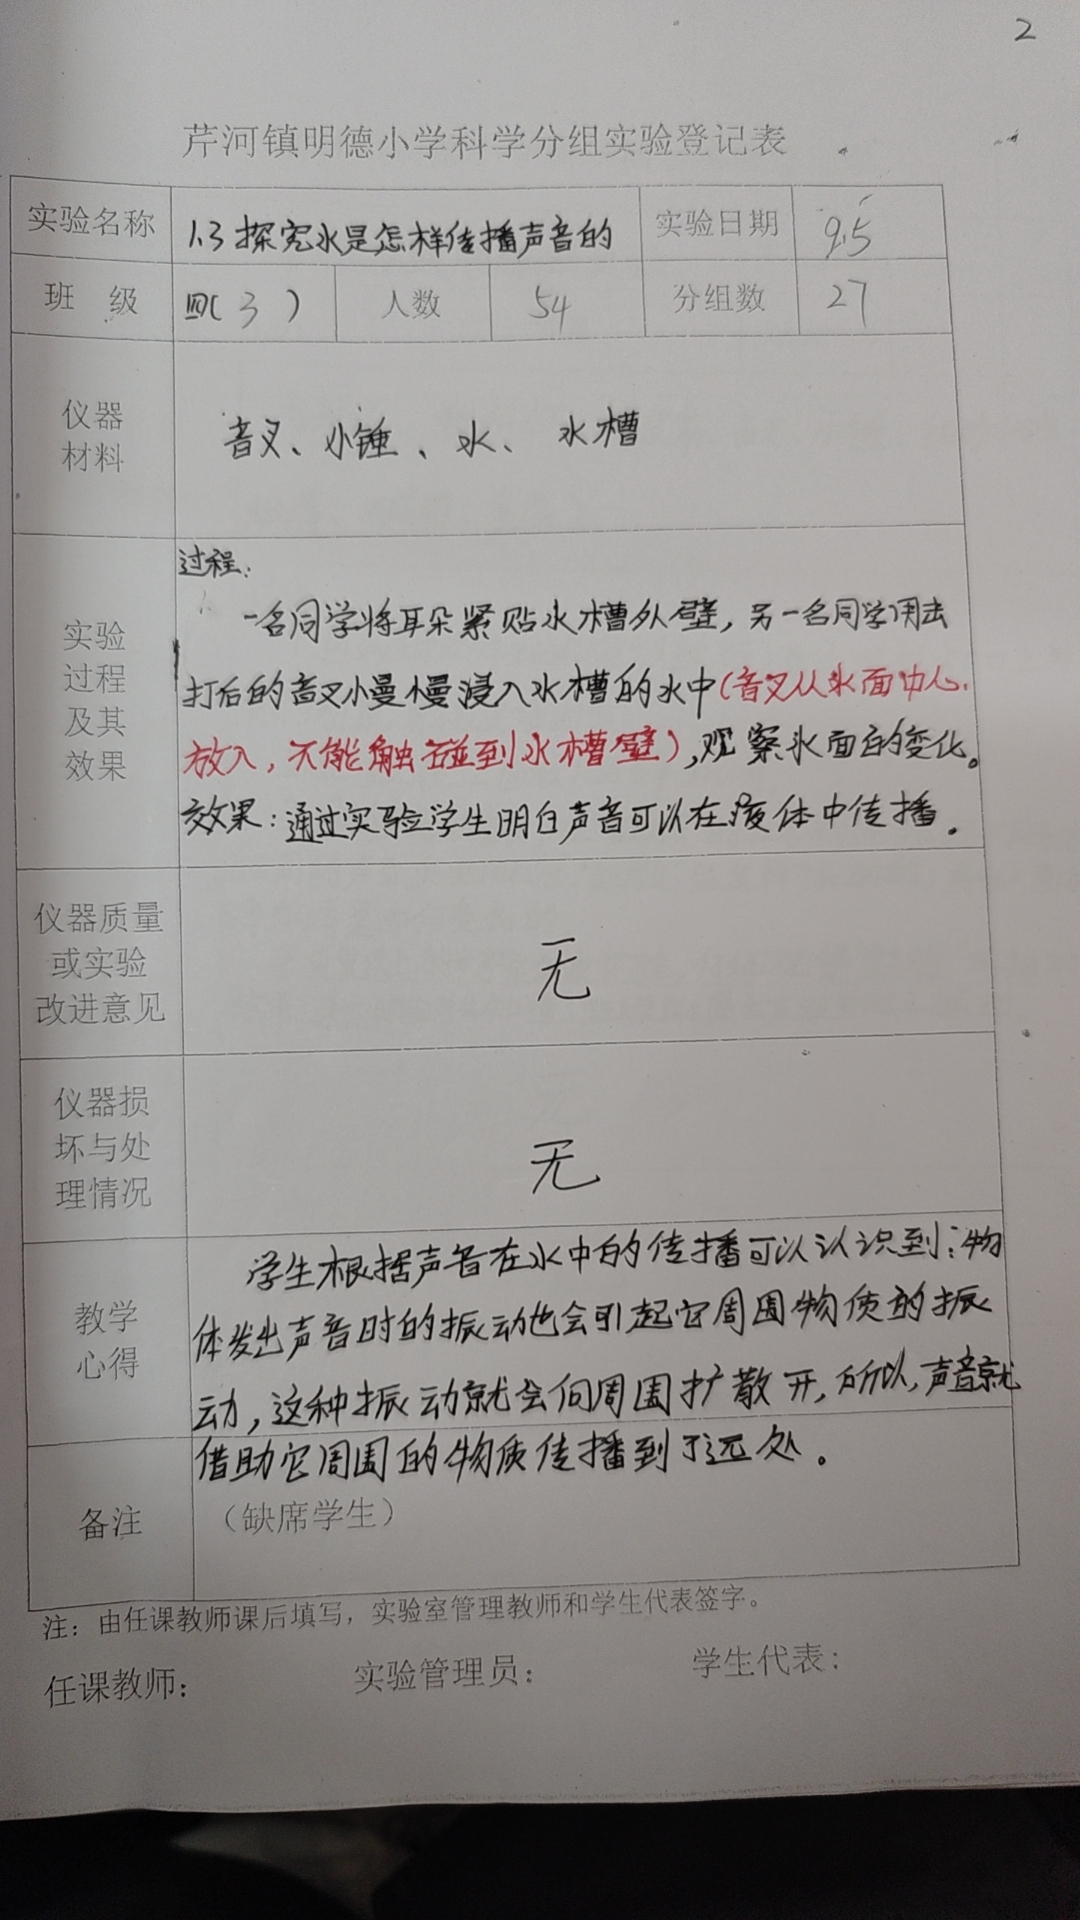 2
芹河镇明德小学科学分组实验登记表
实验名称 1.3探究水是怎样传播声音的 实验日期 9.5
班 级 四(3) 人数 54 分组数 27
仪器
材料
音叉、小锤、水、水槽
实验
过程
及其
效果
过程:
一名同学将耳朵紧贴水槽外壁,另一名同学用击
打后的音叉小慢慢浸入水槽的水中(音叉从水面中心
放入,不能触碰到水槽壁),观察水面的变化。
效果:通过实验学生明白声音可以在液体中传播.
仪器质量
或实验
改进意见
无
仪器损
坏与处
理情况
无
教学
心得
学生根据声音在水中的传播可以认识到:物
体发出声音时的振动也会引起它周围物质的振
动,这种振动就会向周围扩散开,所以,声音就
借助它周围的物质传播到了远处。
备注
(缺席学生)
注:由任课教师课后填写,实验室管理教师和学生代表签字。
任课教师: 实验管理员: 学生代表: